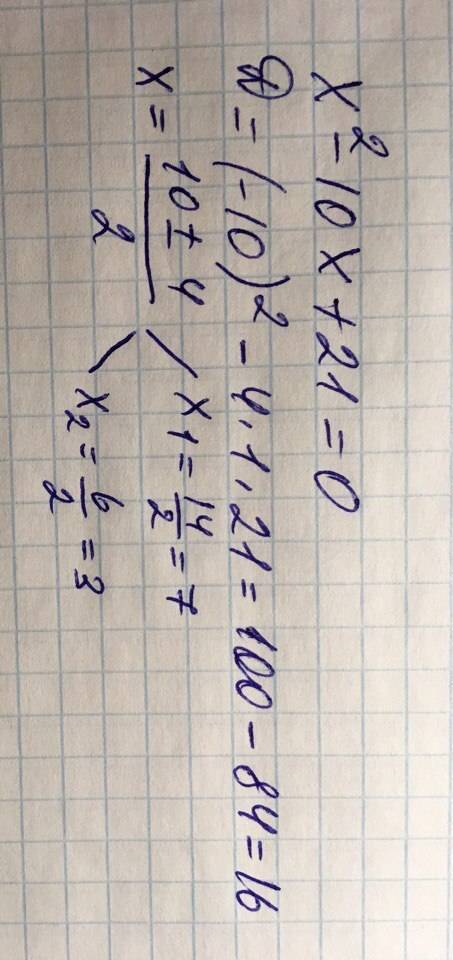 x² - 10x + 21 = 0
D = (-10)² - 4 · 1 · 21 = 100 - 84 = 16
x = (10 ± 4)/2
x₁ = 14/2 = 7
x₂ = 6/2 = 3